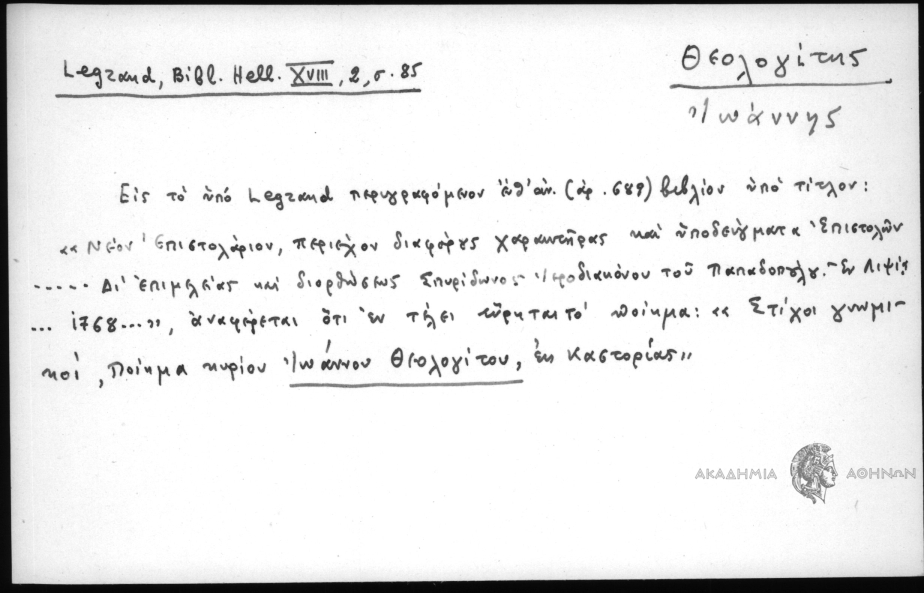 Legrand, Bibl. Hell. XVIII, 2, σ. 85
Θεολογίτης
Ἰωάννης
Εἰς τὸ ὑπό Legrand περιγραφόμενον (ἀρ. 689) βιβλίον ὑπό τίτλον:
«Νέον Ἐπιστολάριον, περιέχον διαφόρους χαρακτῆρας καὶ ὑποδείγματα Ἐπιστολῶν
..... Δι' ἐπιμελείας καὶ διορθώσεως Σπυρίδωνος Ἱεροδιακόνου τοῦ Παπαδοπούλου.- Ἐν Λιψίᾳ
... 1768...», ἀναφέρεται ὅτι ἐν τέλει εὕρηται τό ποίημα: «Στίχοι γνωμι-
κοί, ποίημα κυρίου Ἰωάννου Θεολογίτου, ἐκ Καστορίας»
ΑΚΑΔΗΜΙΑ ΑΘΗΝΩΝ